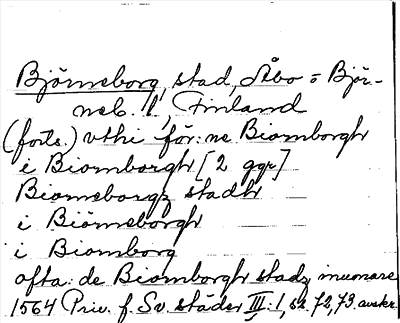 Björneborg, stad, Åbo = Björ-
neb. l., Finland
(forts.) vthi för:ne Biomborgh
i Biomborgh [2 ggr]
Biomeborgz stadh
i Biörneborgh
i Biomborg
ofta: de Biomborgh stadz inuonare
1564 Priv. f. Sv. städer III: 1, s. 72, 73. avskr.